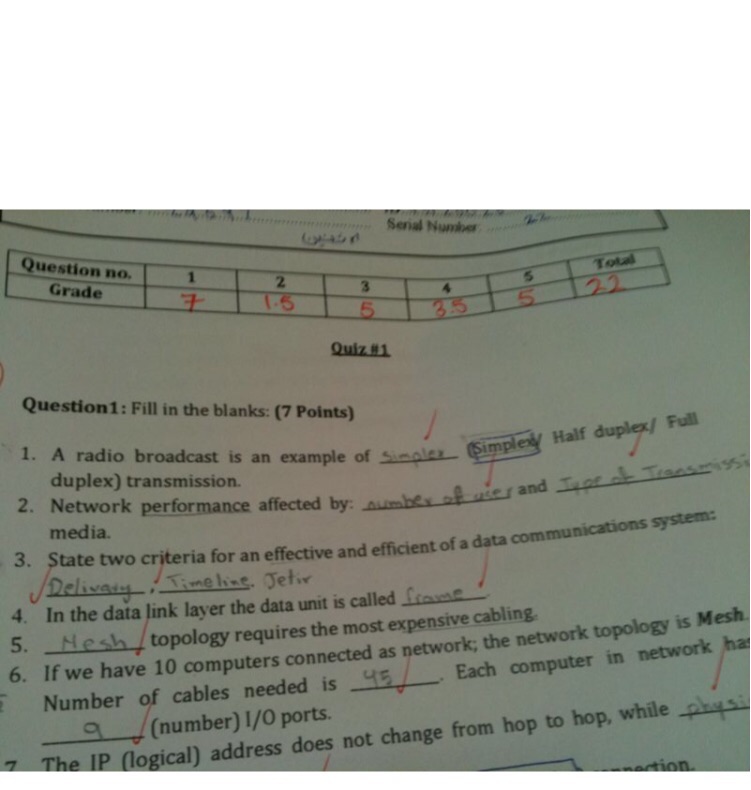 Serial Number 22
Question no. 1 2 3 4 5 Total
Grade 7 1.5 5 3.5 5 22
Quiz #1
Question1: Fill in the blanks: (7 Points)
1. A radio broadcast is an example of simplex (Simplex/ Half duplex/ Full
duplex) transmission.
2. Network performance affected by: number of user and Type of Transmissi
media.
3. State two criteria for an effective and efficient of a data communications system:
Delivary , Timeline. Jetir
4. In the data link layer the data unit is called frame
5. Mesh topology requires the most expensive cabling.
6. If we have 10 computers connected as network; the network topology is Mesh.
Number of cables needed is 45. Each computer in network has
9 (number) I/O ports.
7 The IP (logical) address does not change from hop to hop, while physi
nnection.